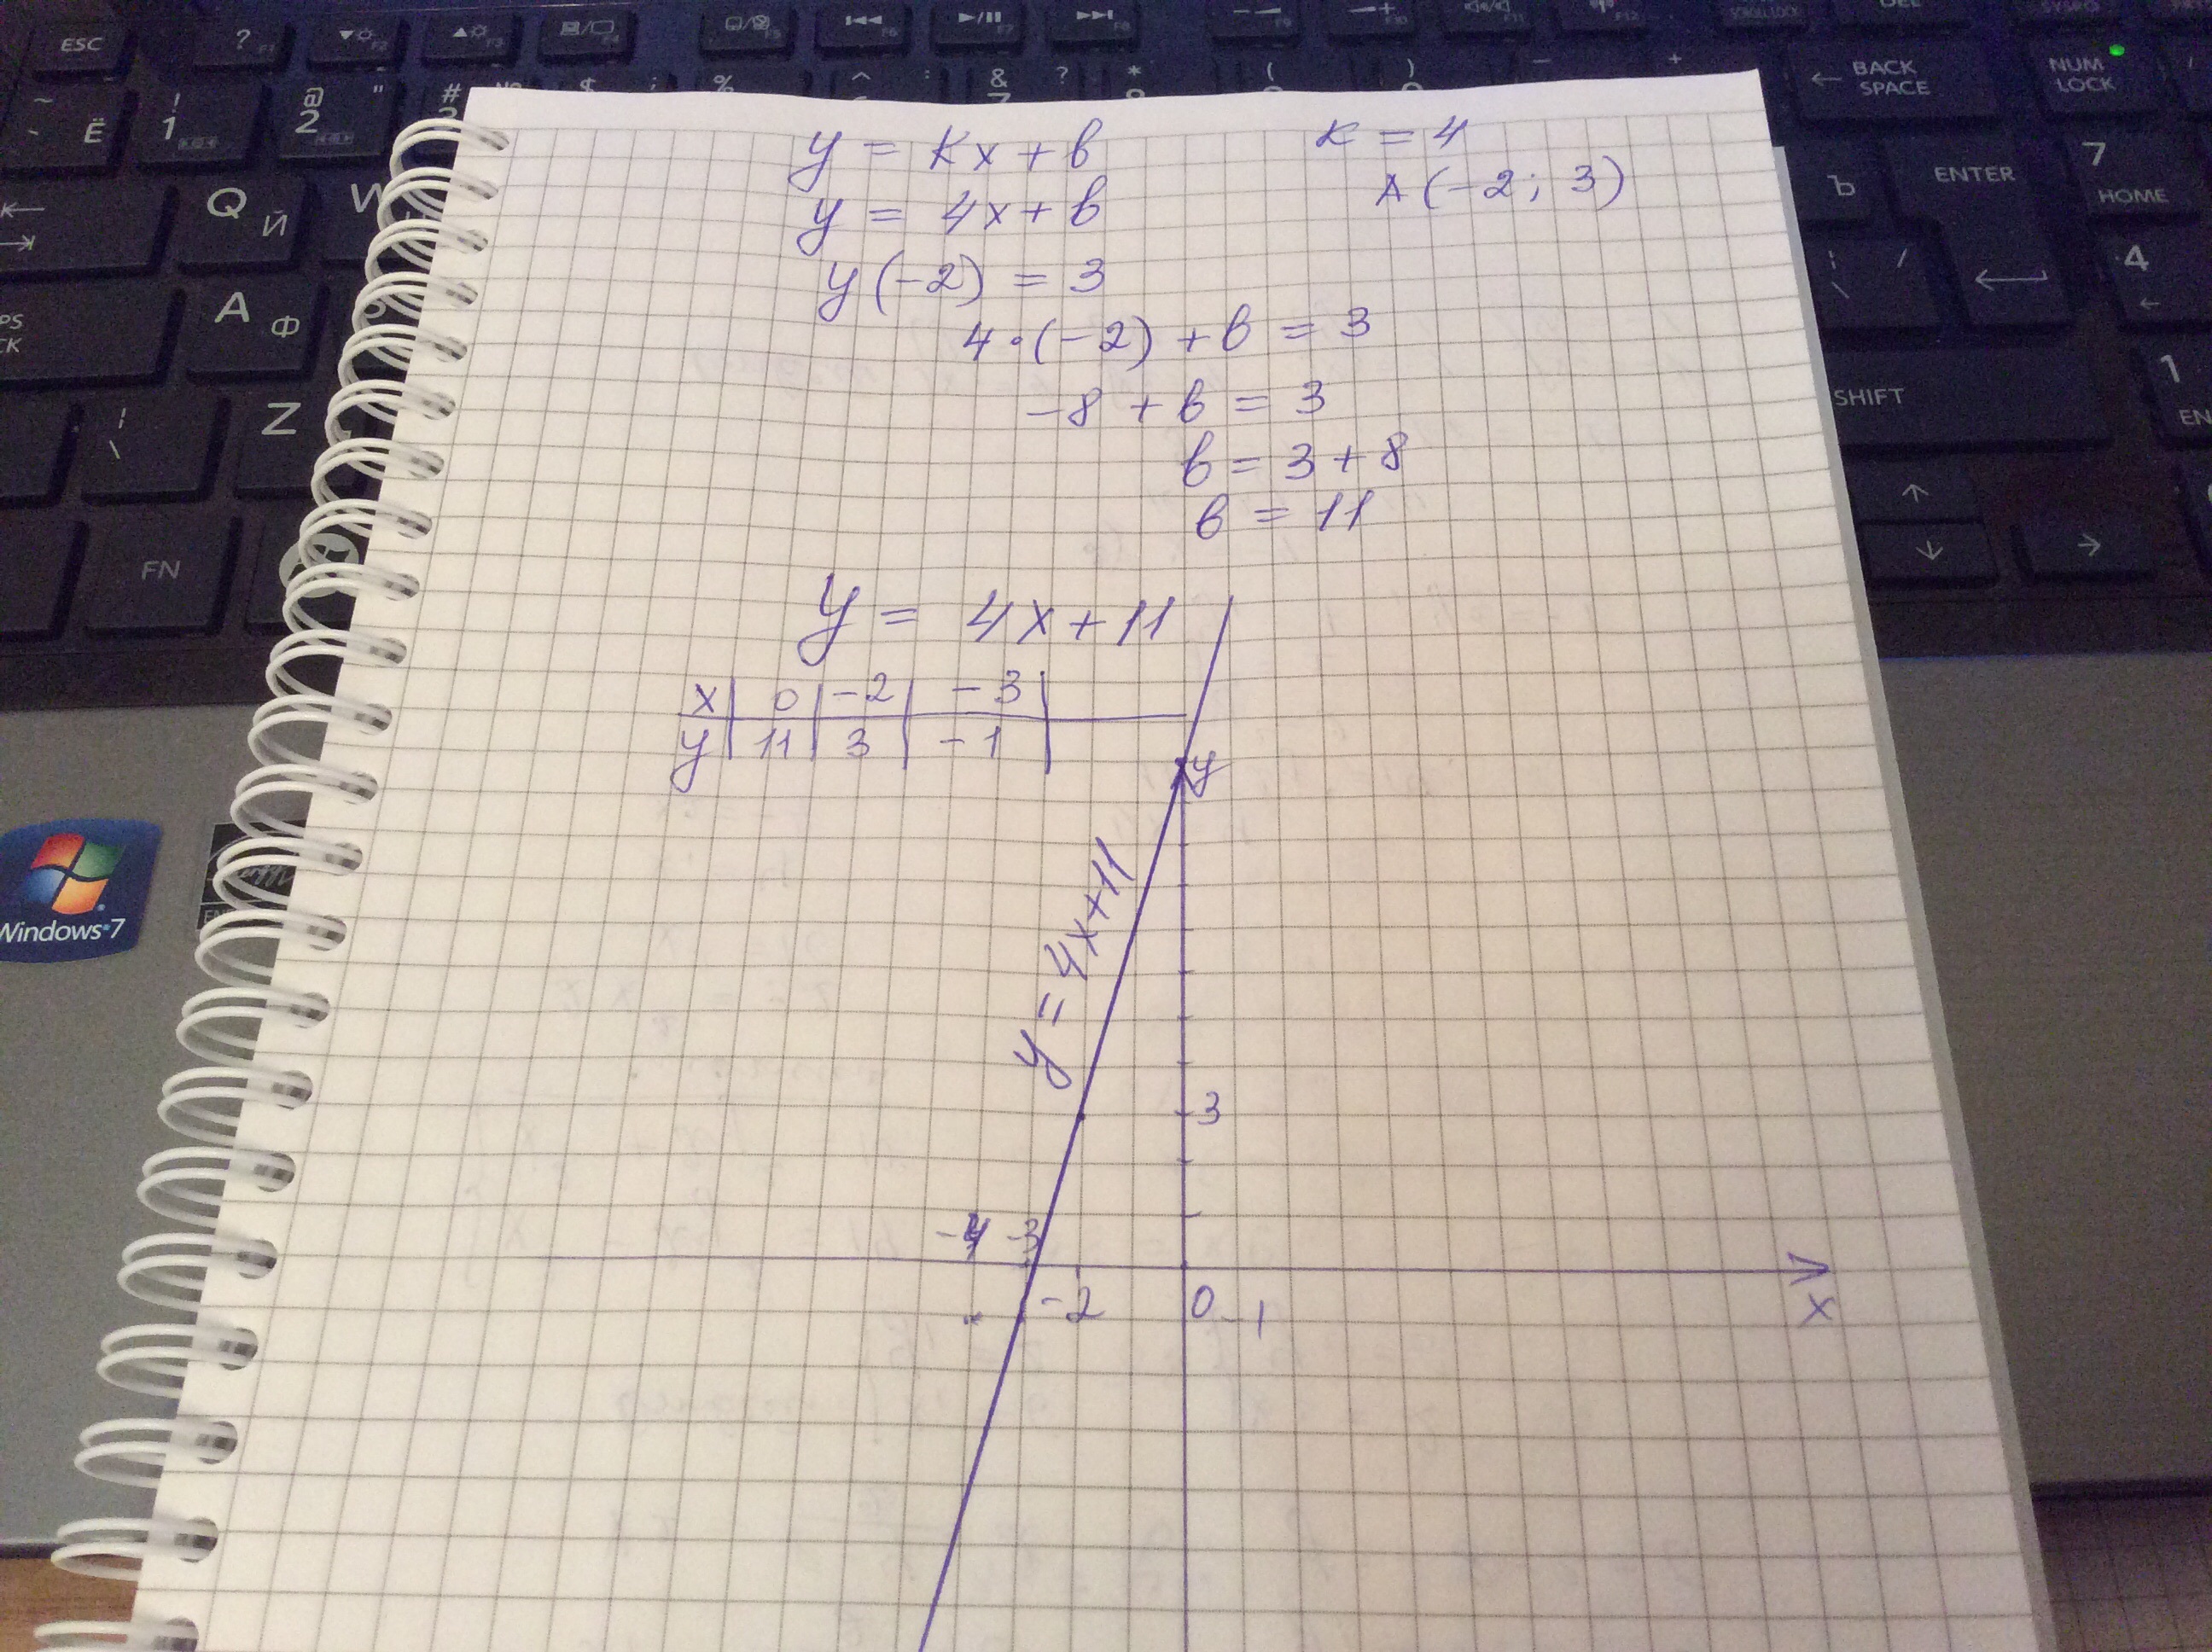 y = kx + b
k = 4
A(-2; 3)
y = 4x + b
y(-2) = 3
4·(-2) + b = 3
-8 + b = 3
b = 3 + 8
b = 11
y = 4x + 11
x | 0 | -2 | -3 |
y | 11 | 3 | -1 |
y
y = 4x+11
3
-4 -3
-2 0 -1 x
ESC
? F1
F2
F3
F4
F5
F6
F7
F8
F9
F10
F11
F12
SCROLL LOCK
DEL
SYSRQ
~ ` Ё
! 1
@ " 2
#
$ ;
% :
^ :
& ?
*
(
)
_
+
← BACK SPACE
NUM LOCK
Q Й
W
Ъ
ENTER
7 HOME
A Ф
4 ←
PS CK
Z
SHIFT
1 EN
FN
Windows 7